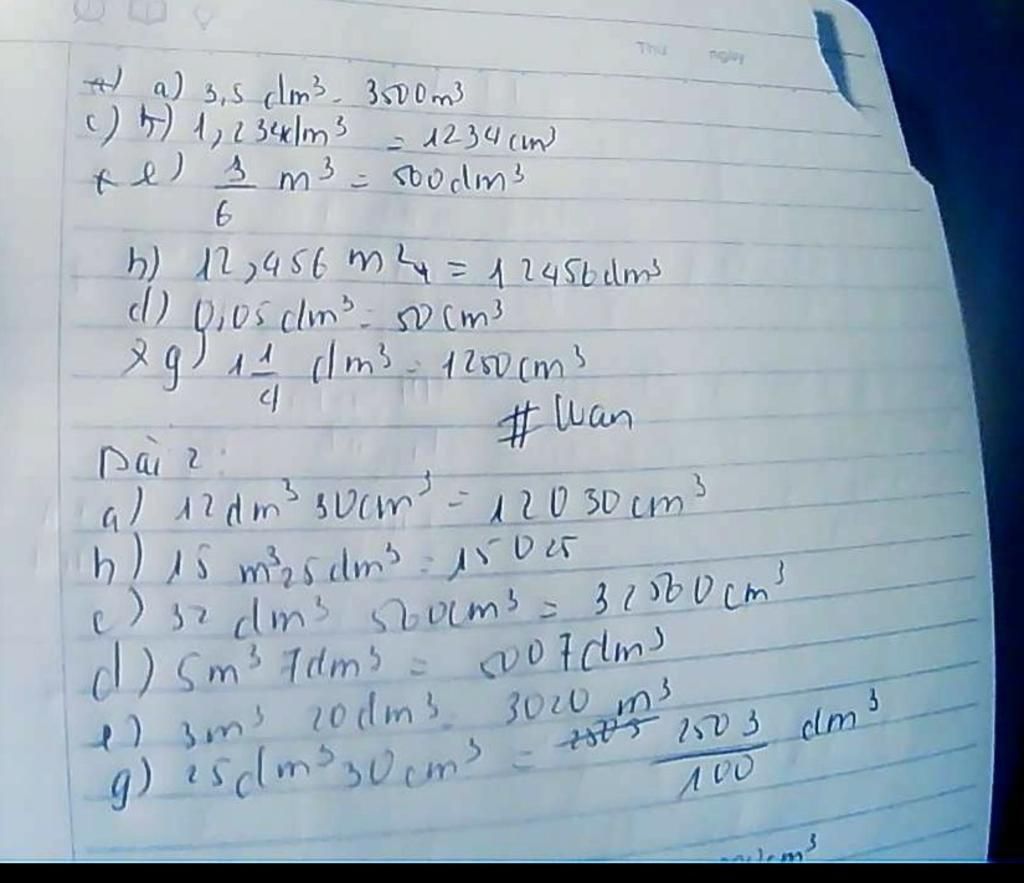 Thứ ngày
a) 3,5 dm³ = 3500m³
c) b) 1,234dm³ = 1234cm³
e) 3/6 m³ = 500dm³
b) 12,456 m³ = 12456dm³
d) 0,05dm³ = 50cm³
g) 1 1/4 dm³ = 1250cm³
# Wan
Bài 2:
a) 12dm³ 30cm³ = 12030cm³
b) 15 m³25dm³ = 15025
c) 32 dm³ 560cm³ = 32560cm³
d) 5m³ 7dm³ = 5007dm³
e) 3m³ 20dm³ = 3020 m³
g) 25dm³30cm³ = 2503/100 dm³